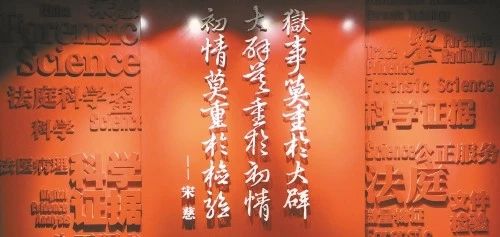 Forensic
Science
法庭科学鉴
科学
法医病理
科学
证据
獄事莫重於大辟
大辟莫重於初情
初情莫重於檢驗
——宋慈
鉴
Forensic
Pathology
Evidence
Forensic Science
科学证据
Science 公正服务
法庭
文件